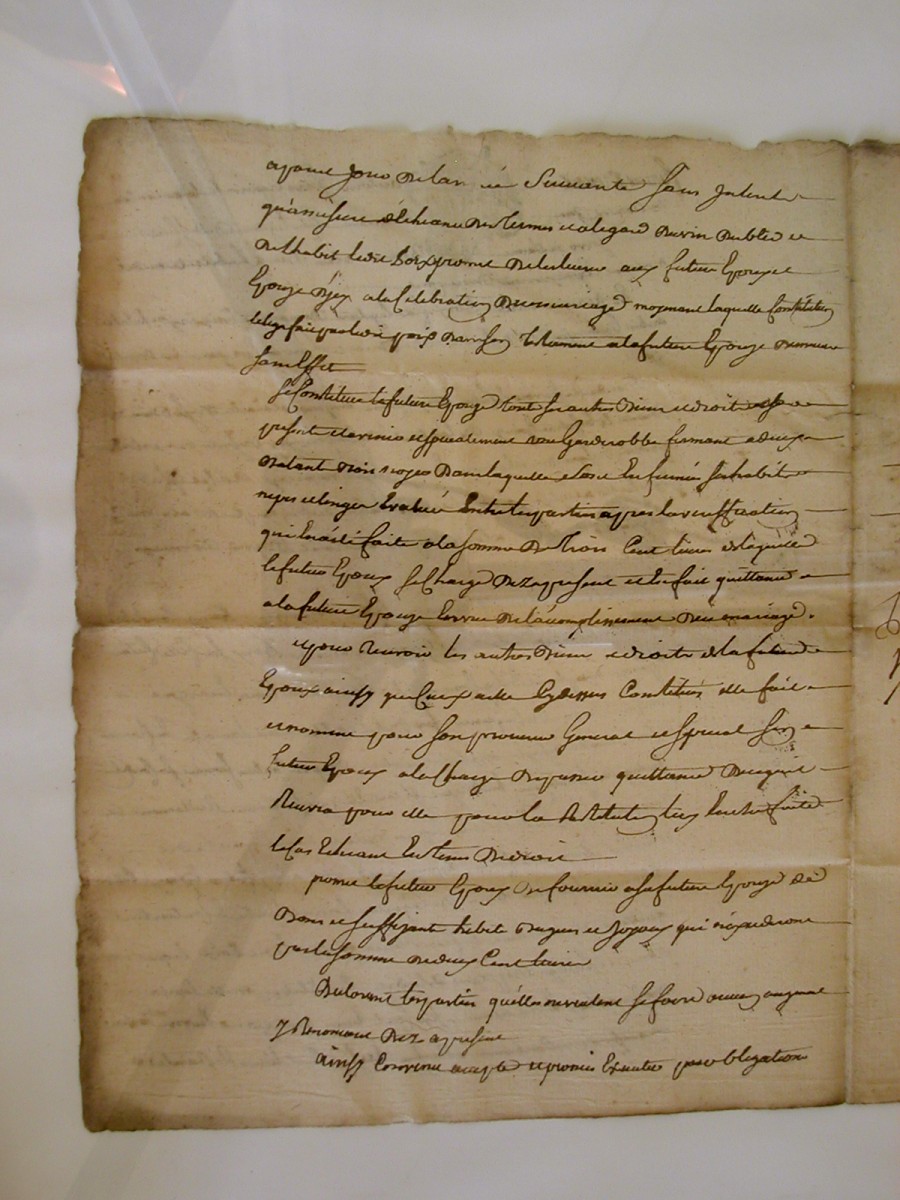 ayant jour de lan née suivante sans interest
qu'a mesure d'echeance des termes et a legard du vin du bled et
de lhabit ledit promet de les livrer aux futurs Epoux et
Epouze a la Celebration du mariage moyenant laquelle Constitution
le legs fait par ledit dans son testament a la future Epouze demeure
sans Effet
Se Constitue la future Epouze tous ses autres biens et droits
presents et avenir et specialement une Garderobbe fermant a deux
battants bois noyer dans laquelle elle a Enfermé ses habits
nipes et linges Evalués Entre les parties apres la veriffication
qui En a été faite a la somme de trois Cent livres de laquelle
le futur Epoux se Charge dez a present et En fait quittance
a la future Epouze En vue de l'acomplissement du mariage.
et pour recevoir les autres biens et droits de la future
Epouze ainsy que Ceux a elle Cydessus Constitués elle fait
et nomme pour son procureur General et special son
futur Epoux a la Charge de passer quittance de ce qu'il
recevra pour elle pour la restitution luy En etre faite
le Cas Echeant En tems de droit
promet le futur Epoux de fournir a la future Epouze de
bons et suffizants habits bagues et joyaux qui n'exederont
pas la somme de deux Cent livres
declarent les parties qu'elles ne veulent se faire aucun augment
y renoncent dez a present
ainsy Convenu accepté et promis Executer par obligation